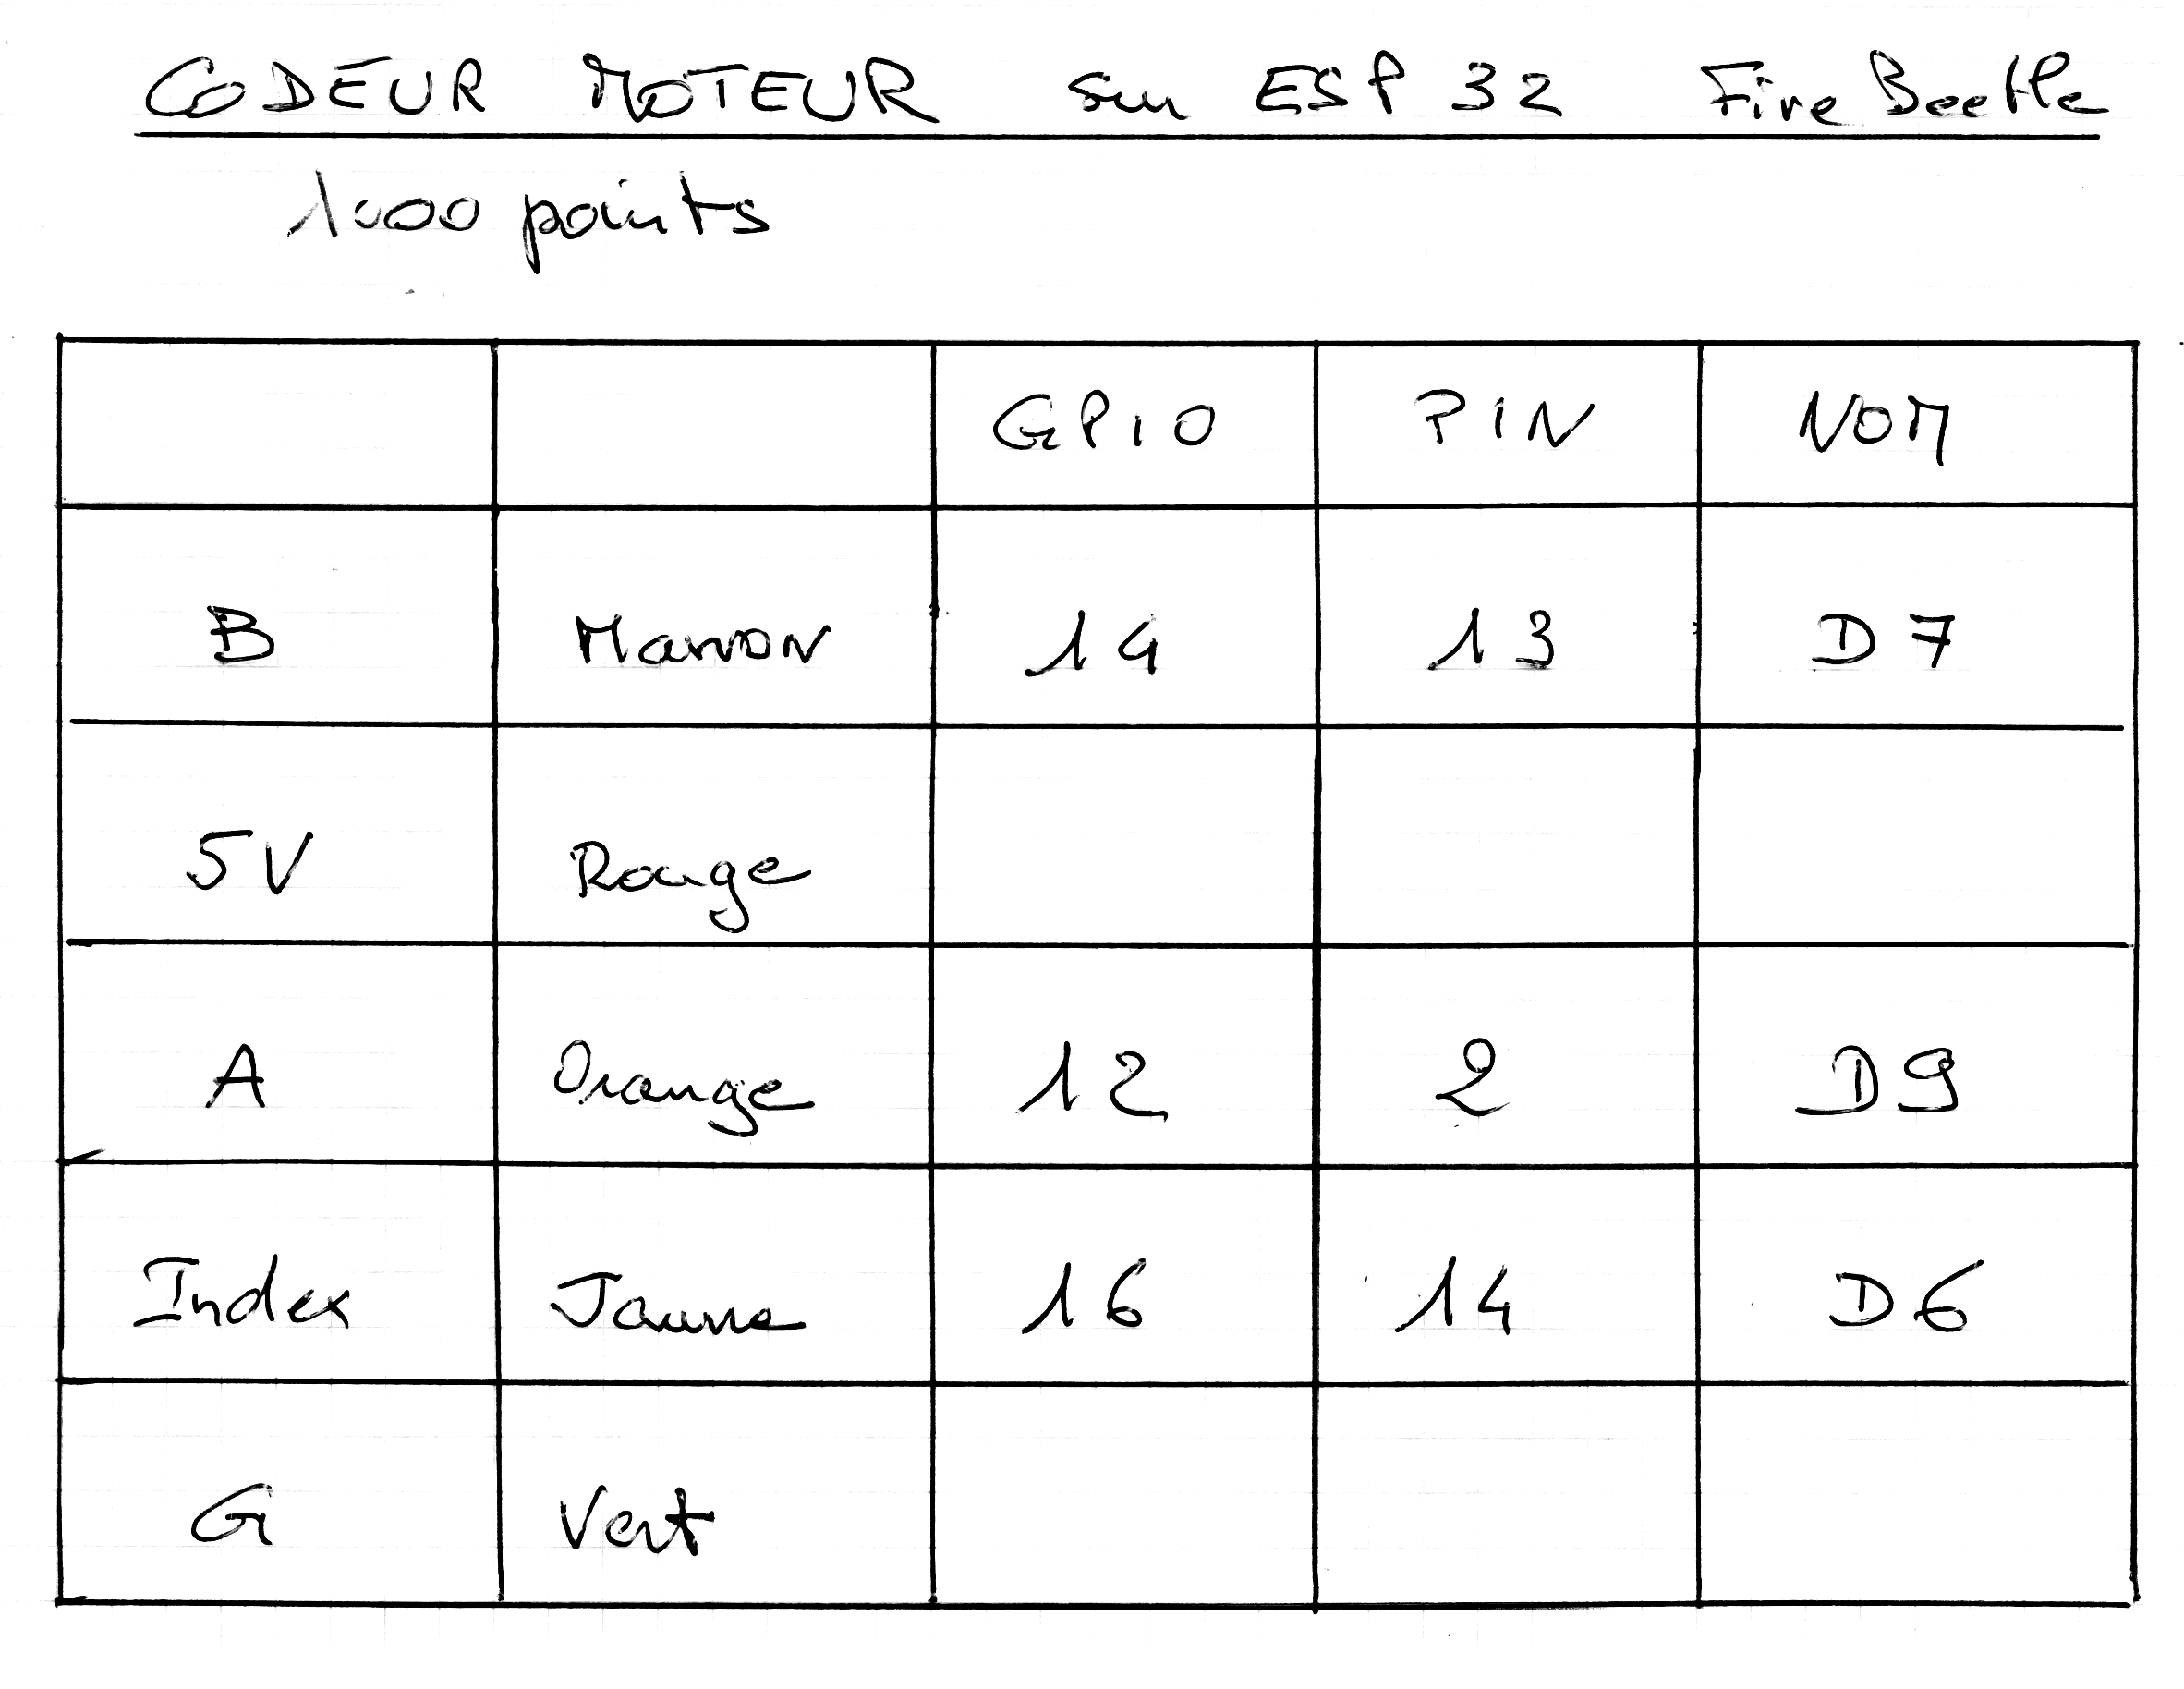 CODEUR MOTEUR sur ESP 32 FireBeetle
1000 points
GPIO PIN NOM
B Marron 14 13 D7
5V Rouge
A Orange 12 2 D9
Index Jaune 16 14 D6
G Vert